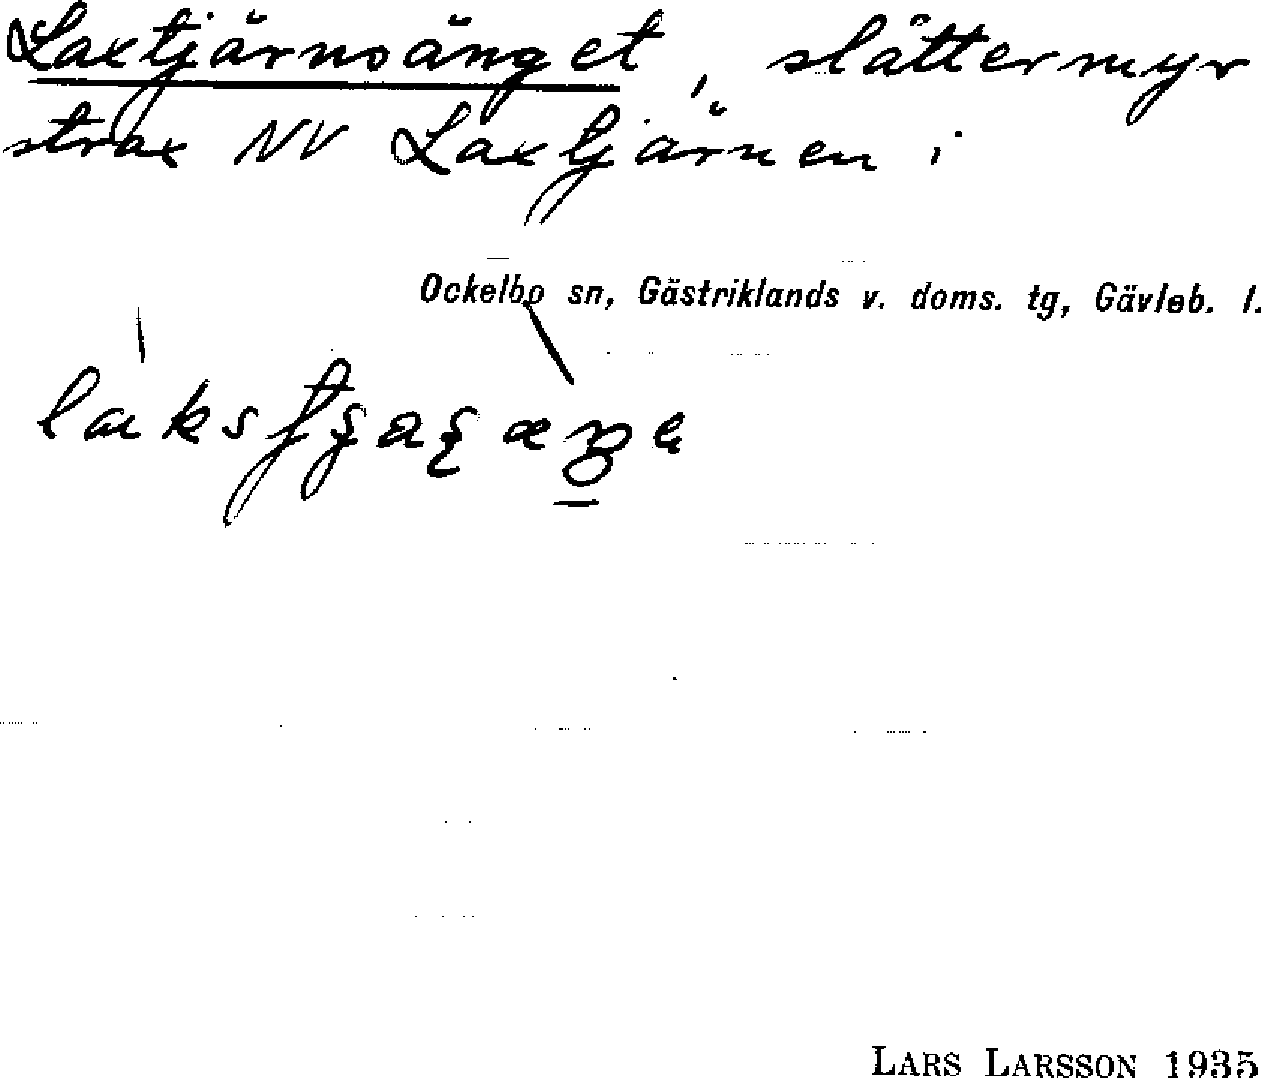 Laxtjärnsänget, slåttermyr
strax NV Laxtjärnen i
Ockelbo sn, Gästriklands v. doms. tg, Gävleb. l.
LARS LARSSON 1935